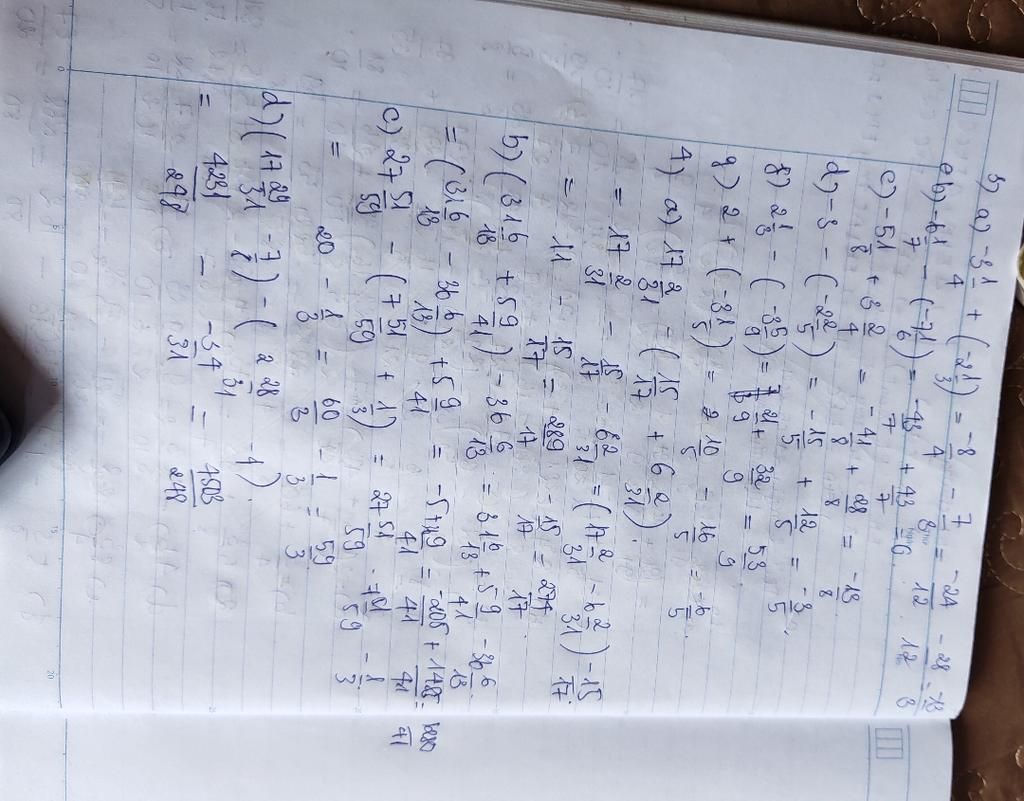 3) a) -3 1/4 + (-2 1/3) = -8/4 - 7/3 = -24/12 - 28/12 = -13/3
b) -6 1/7 - (-7 1/6) = -43/7 + 43/7 = 0.
c) -5 1/8 + 3 2/4 = -41/8 + 28/8 = -13/8
d) -3 - (-2 2/5) = -15/5 + 12/5 = -3/5.
g) 2 + (-3 1/5) = 10/5 - 16/5 = -6/5.
4) a) 17 2/31 = (15/17 + 6 2/31)
= 17 2/31 - 15/17 - 6 2/31 = (17 2/31 - 6 2/31) - 15/17.
= 11 - 15/17 = 289/17 - 15/17 = 274/17.
b) (31 6/13 + 5 9/41) - 36 6/13 = 31 6/13 + 5 9/41 - 36 6/13.
= (31 6/13 - 36 6/13) + 5 9/41 = -5 +
c) 27 51/59 - (7 51/59 + 1/3) = 27 51/59 - 7 51/59 - 1/3
= 20 - 1/3 = 60/3 - 1/3 = 59/3
d) (17 29/31 - 7/8) - (2 28/31 - 4)
= 4231/248 - -34/31 = 4503/248